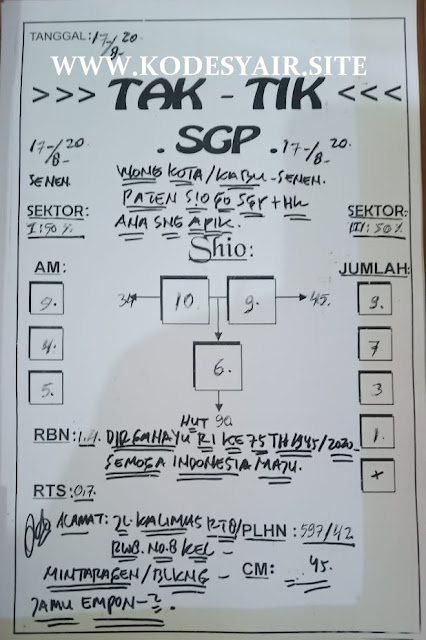 TANGGAL: 17-/8- 20
WWW.KODESYAIR.SITE
>>> TAK - TIK <<<
. SGP .
17-/8- 20. 17-/8- 20.
SENEN. WONG KOTA/KABU-SENEN.
PATEN SIO GO SGP + HK
SEKTOR: ANA SNG APIK. SEKTOR:
I: 50 %. III: 50%
Shio:
AM: JUMLAH:
9. 34 10. 9. 45. 9.
4. 6. 7
5. 3
HUT 90
RBN: 1.4. DIRGAHAYU RI KE 75 TH 1945/2020 1.
SEMOGA INDONESIA MAJU. x
RTS: 07.
ALAMAT: JL. KALIMAS /PLHN : 597/42
NO.8 KEL -
MINTARAGEN/BLKNG - CM: 45.
JAMU EMPON-2.